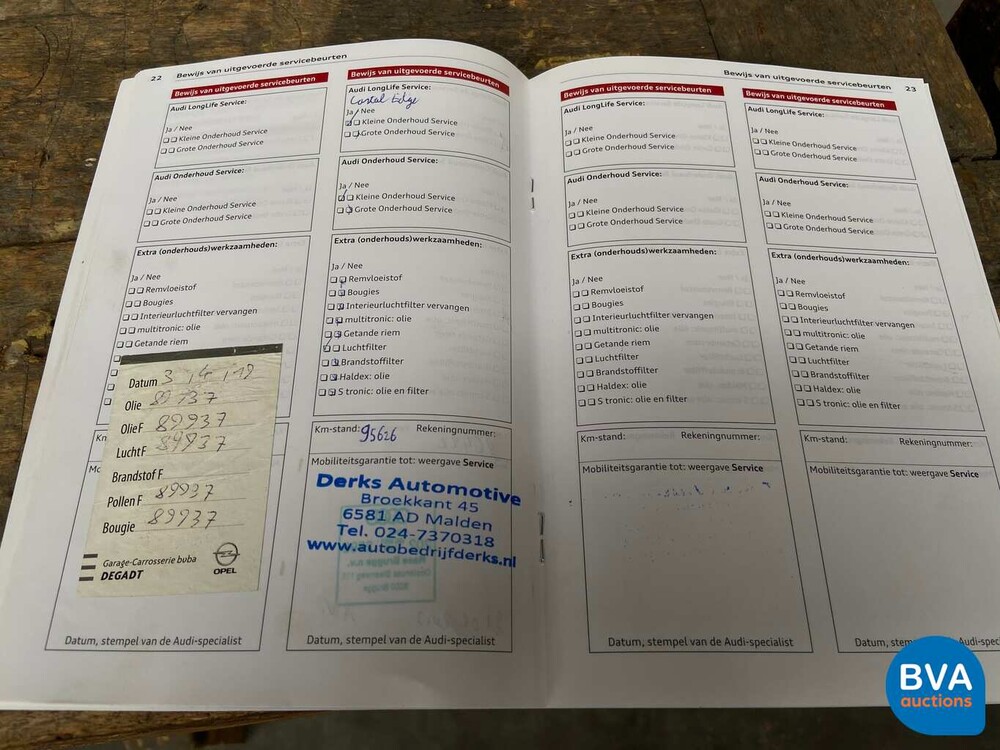 22 Bewijs van uitgevoerde servicebeurten
Bewijs van uitgevoerde servicebeurten
Audi LongLife Service:
Ja / Nee
Kleine Onderhoud Service
Grote Onderhoud Service
Audi Onderhoud Service:
Ja / Nee
Kleine Onderhoud Service
Grote Onderhoud Service
Extra (onderhouds)werkzaamheden:
Ja / Nee
Remvloeistof
Bougies
Interieurluchtfilter vervangen
multitronic: olie
Getande riem
Datum 3.4.19
Olie 89937
Olie F 89937
Lucht F 89937
Brandstof F
Pollen F 89937
Bougie 89937
Garage-Carrosserie buba
DEGADT
OPEL
Datum, stempel van de Audi-specialist
Bewijs van uitgevoerde servicebeurten
Audi LongLife Service:
Castol Edge
Ja / Nee
Kleine Onderhoud Service
Grote Onderhoud Service
Audi Onderhoud Service:
Ja / Nee
Kleine Onderhoud Service
Grote Onderhoud Service
Extra (onderhouds)werkzaamheden:
Ja / Nee
Remvloeistof
Bougies
Interieurluchtfilter vervangen
multitronic: olie
Getande riem
Luchtfilter
Brandstoffilter
Haldex: olie
S tronic: olie en filter
Km-stand: 95626 Rekeningnummer:
Mobiliteitsgarantie tot: weergave Service
Derks Automotive
Broekkant 45
6581 AD Malden
Tel. 024-7370318
www.autobedrijfderks.nl
Datum, stempel van de Audi-specialist
Bewijs van uitgevoerde servicebeurten 23
Bewijs van uitgevoerde servicebeurten
Audi LongLife Service:
Ja / Nee
Kleine Onderhoud Service
Grote Onderhoud Service
Audi Onderhoud Service:
Ja / Nee
Kleine Onderhoud Service
Grote Onderhoud Service
Extra (onderhouds)werkzaamheden:
Ja / Nee
Remvloeistof
Bougies
Interieurluchtfilter vervangen
multitronic: olie
Getande riem
Luchtfilter
Brandstoffilter
Haldex: olie
S tronic: olie en filter
Km-stand: Rekeningnummer:
Mobiliteitsgarantie tot: weergave Service
Datum, stempel van de Audi-specialist
Bewijs van uitgevoerde servicebeurten
Audi LongLife Service:
Ja / Nee
Kleine Onderhoud Service
Grote Onderhoud Service
Audi Onderhoud Service:
Ja / Nee
Kleine Onderhoud Service
Grote Onderhoud Service
Extra (onderhouds)werkzaamheden:
Ja / Nee
Remvloeistof
Bougies
Interieurluchtfilter vervangen
multitronic: olie
Getande riem
Luchtfilter
Brandstoffilter
Haldex: olie
S tronic: olie en filter
Km-stand: Rekeningnummer:
Mobiliteitsgarantie tot: weergave Service
Datum, stempel van de Audi-spec
BVA
auctions